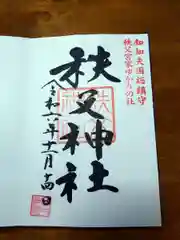 知知夫国総鎮守
秩父宮家ゆかりの社
秩父神社
令和六年十一月十四